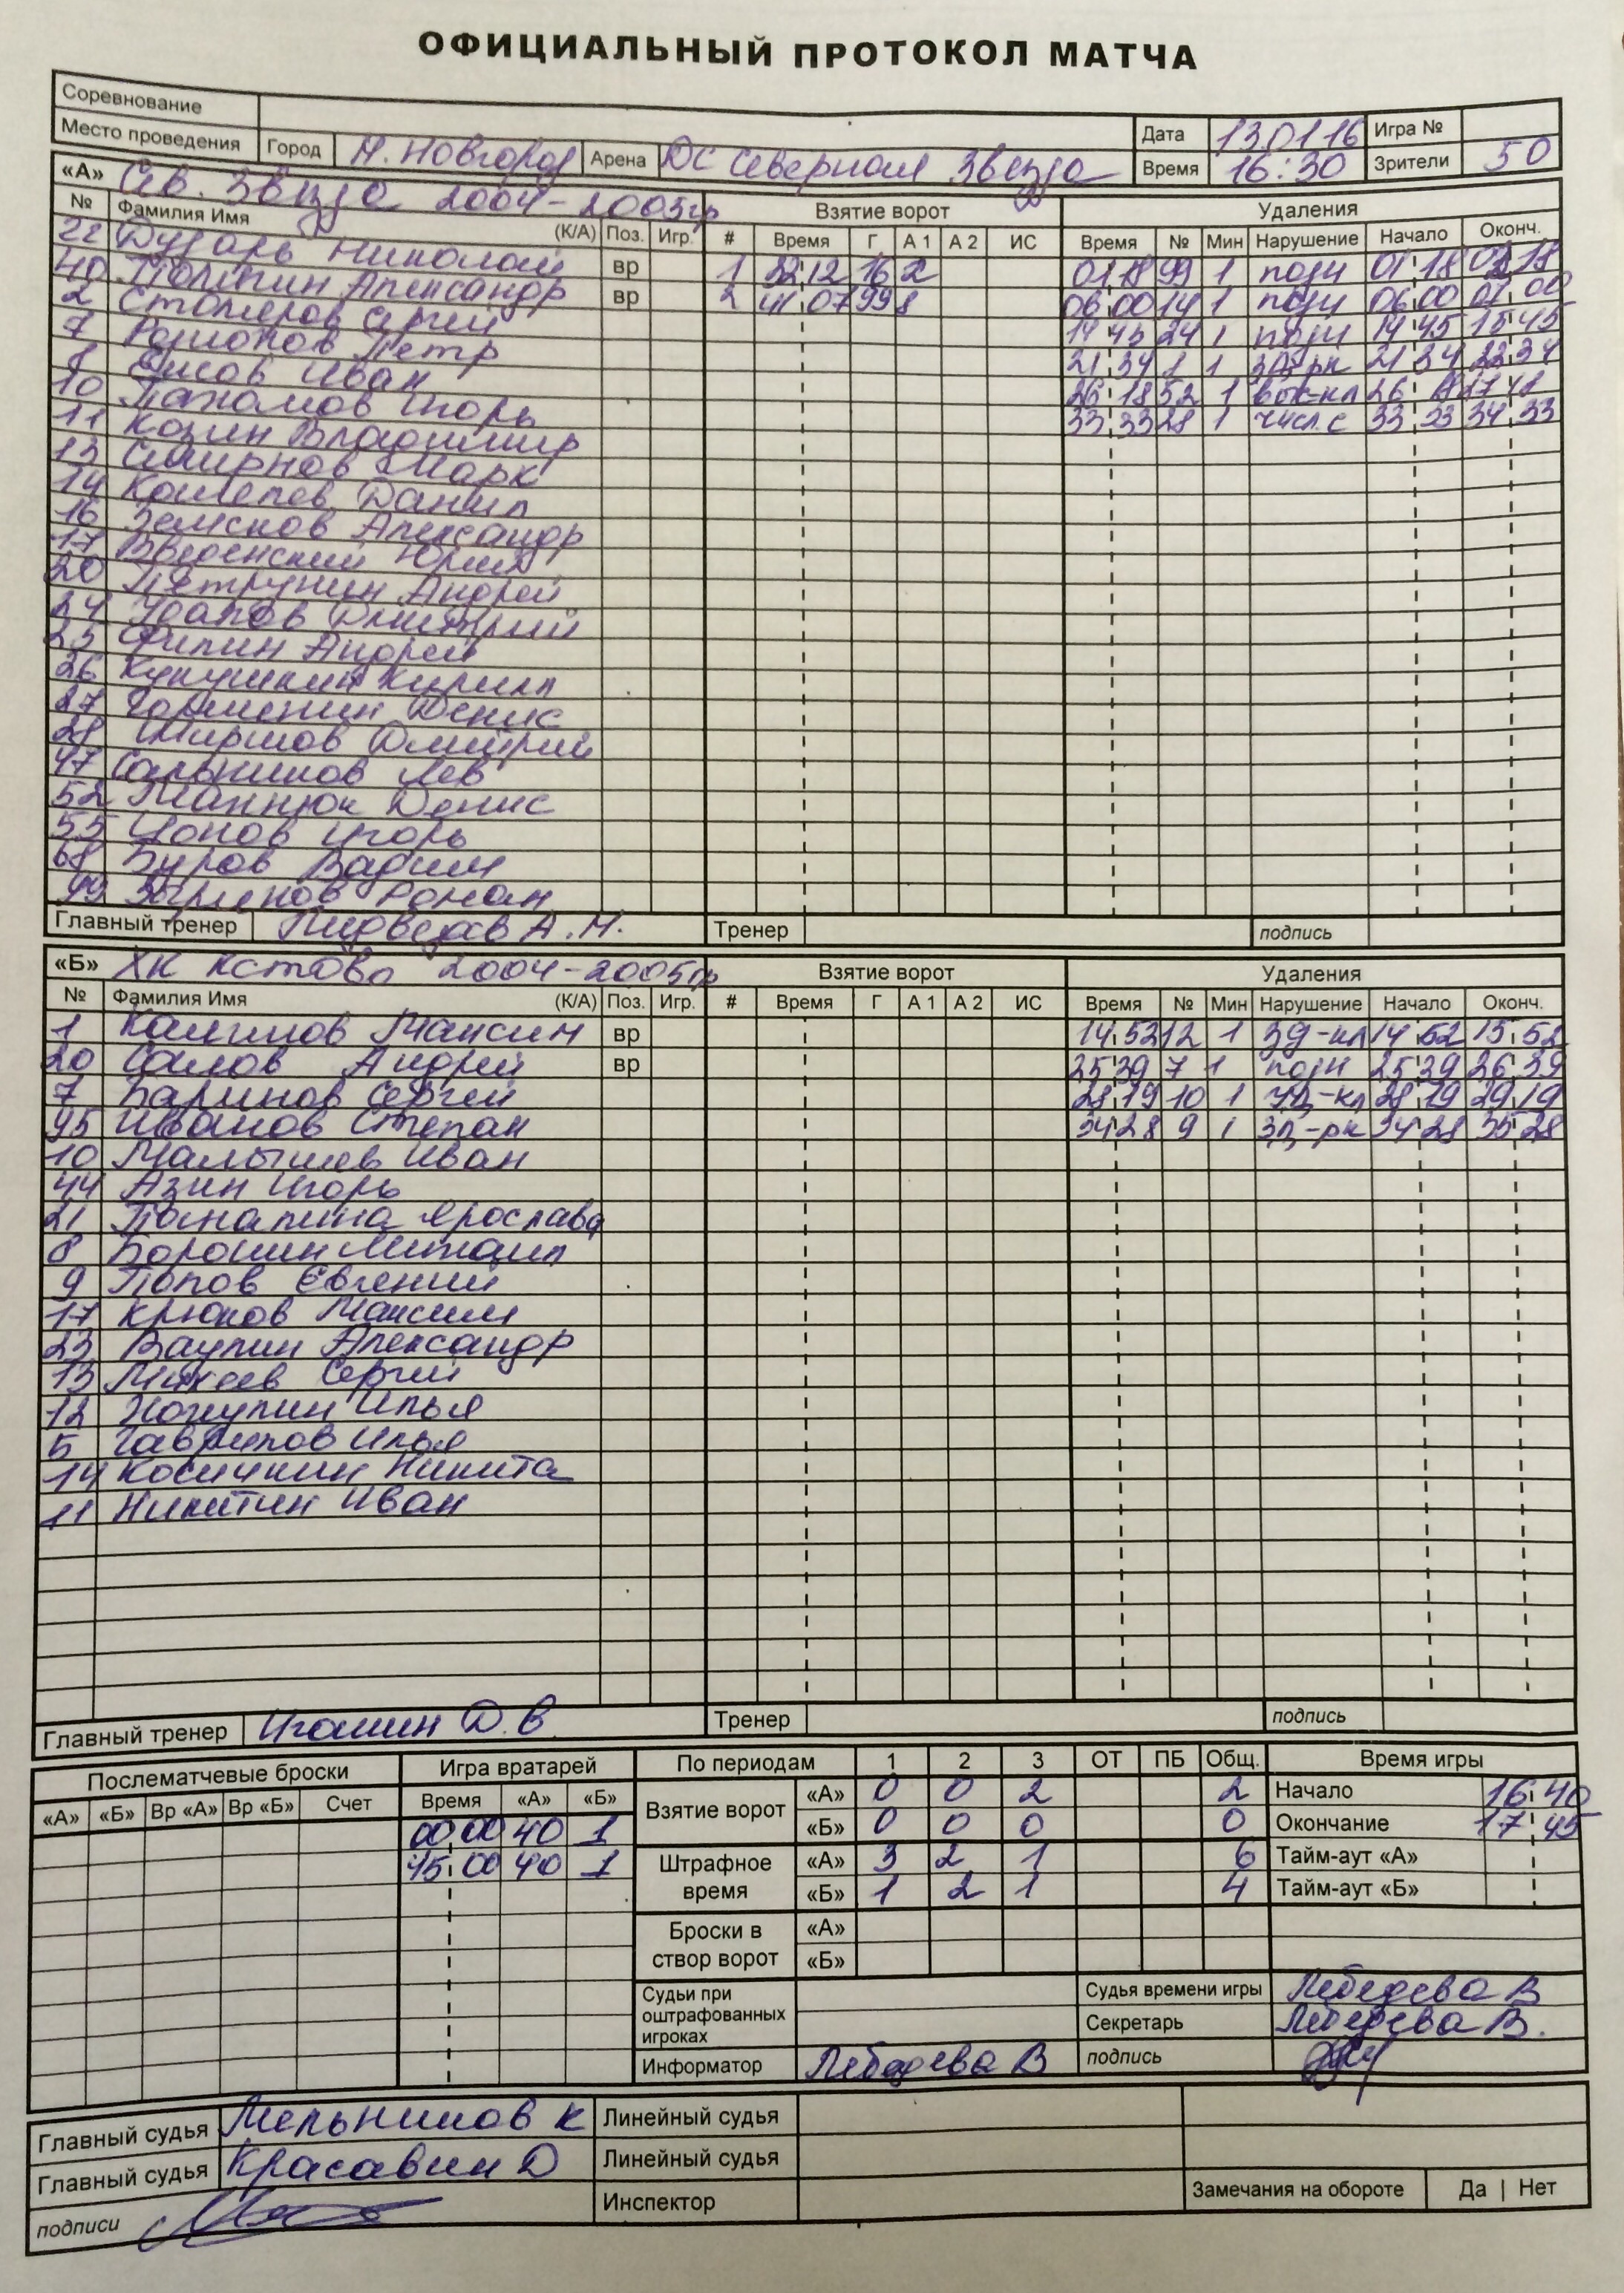 ОФИЦИАЛЬНЫЙ ПРОТОКОЛ МАТЧА
Соревнование
Место проведения Город Н. Новгород Арена ДС Северная Звезда Дата 13.01.16 Игра №
Время 16:30 Зрители 50
«А» Сев. Звезда 2004-2005гр Взятие ворот Удаления
№ Фамилия Имя (К/А) Поз. Игр. # Время Г А 1 А 2 ИС Время № Мин Нарушение Начало Оконч.
22 Дударь Николай вр 1 32 12 16 2 01 18 99 1 подн 01 18 02 18
40 Александр вр 2 41 07 99 8 06 00 14 1 подн 06 00 07 00
2 Столяров Сергей 14 45 24 1 подн 14 45 15 45
7 Родионов Петр 21 34 1 1 зд-рк 21 34 22 34
8 Иван 26 18 52 1 26 18 27 18
10 Пахомов Игорь 33 33 28 1 числ.с 33 33 34 33
11 Козин Владимир
13 Смирнов Марк
14 Кошелев Данил
16 Земсков Александр
17 Введенский Юрий
20 Петрунин Андрей
24 Удалов Дмитрий
25 Филин Андрей
26 Кукушкин Кирилл
27 Горшенин Денис
28 Ширшов Дмитрий
47 Сальников Лев
52 Маннюк Денис
55 Цопов Игорь
68 Буров Вадим
99 Роман
Главный тренер А.Н. Тренер подпись
«Б» ХК Кстово 2004-2005гр Взятие ворот Удаления
№ Фамилия Имя (К/А) Поз. Игр. # Время Г А 1 А 2 ИС Время № Мин Нарушение Начало Оконч.
1 Калинов Максим вр 14 52 12 1 зд-кл 14 52 15 52
20 Саков Андрей вр 25 39 7 1 подн 25 39 26 39
7 Баринов Сергей 28 19 10 1 уд-кл 28 19 29 19
95 Иванов Степан 34 28 9 1 зд-рк 34 28 35 28
10 Малышев Иван
44 Азин Игорь
21 Ярослава
8 Борошин Михаил
9 Попов Евгений
17 Крюков Максим
23 Ваулин Александр
13 Михеев Сергей
12 Хохулин Илья
5 Гаврилов Илья
14 Косичкин Никита
11 Никитин Иван
Главный тренер Игошин Д.В. Тренер подпись
Послематчевые броски Игра вратарей По периодам 1 2 3 ОТ ПБ Общ. Время игры
«А» «Б» Вр «А» Вр «Б» Счет Время «А» «Б» Взятие ворот «А» 0 0 2 2 Начало 16 40
00 00 40 1 «Б» 0 0 0 0 Окончание 17 45
45 00 40 1 Штрафное время «А» 3 2 1 6 Тайм-аут «А»
«Б» 1 2 1 4 Тайм-аут «Б»
Броски в створ ворот «А»
«Б»
Судьи при оштрафованных игроках Судья времени игры Лебедева В
Секретарь Лебедева В.
Информатор Лебедева В подпись
Главный судья Мельников К Линейный судья
Главный судья Красавин Д Линейный судья
подписи Инспектор Замечания на обороте Да | Нет